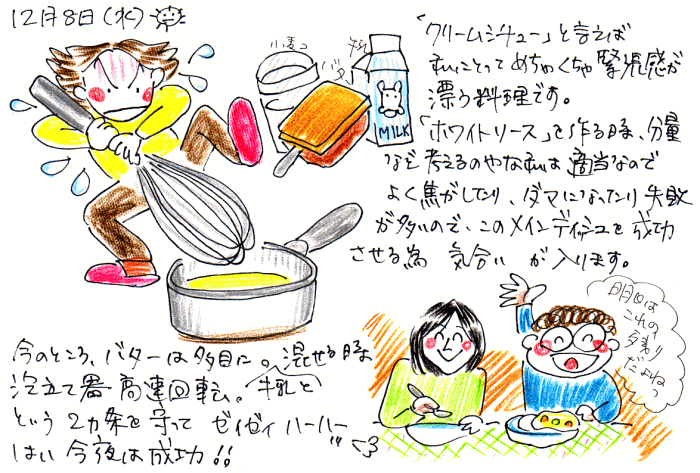 12月8日(水)
小麦コ
バター
牛乳
MILK
「クリームシチュー」と言えば
私にとってめちゃくちゃ緊張感が
漂う料理です。
「ホワイトソース」を作る時、分量
など考えるのやな私は適当なので
よく焦がしたり、ダマになったり失敗
が多いので、このメインディッシュを成功
させる為 気合いが入ります。
明日は
これの
夕残り
だよねっ
今のところ、バターは多目に。混ぜる時
泡立て器高速回転。牛乳と
という2カ条を守ってゼイゼイハーハー
はい今夜は成功!!